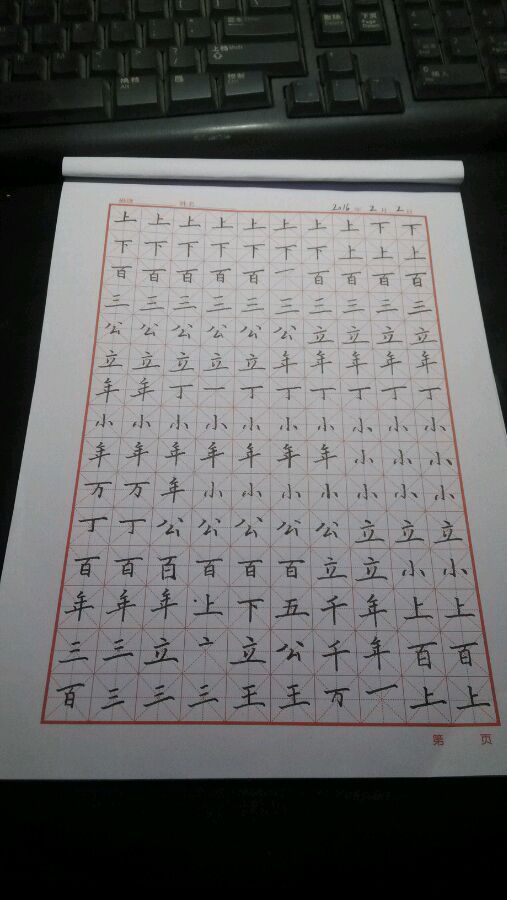 上档 Shift
换档 Alt
控制
姓名 2016年2月2日
上上上上上上上上下下
下下下下下下下上上上
百百百百百一百百百百
三三三三三三三三三三
公公公公公公立立立立
立立立立立年年年年年
年年丁一丁丁丁丁丁丁
小小小小小小小小小小
年年年年年年年小小小
万万年小小小小小小小
丁丁公公公公公立立立
百百百百百百立立小小
年年年上下五千年上上
三三立亠立公千年百百
百三三三王王万一上上
第 页